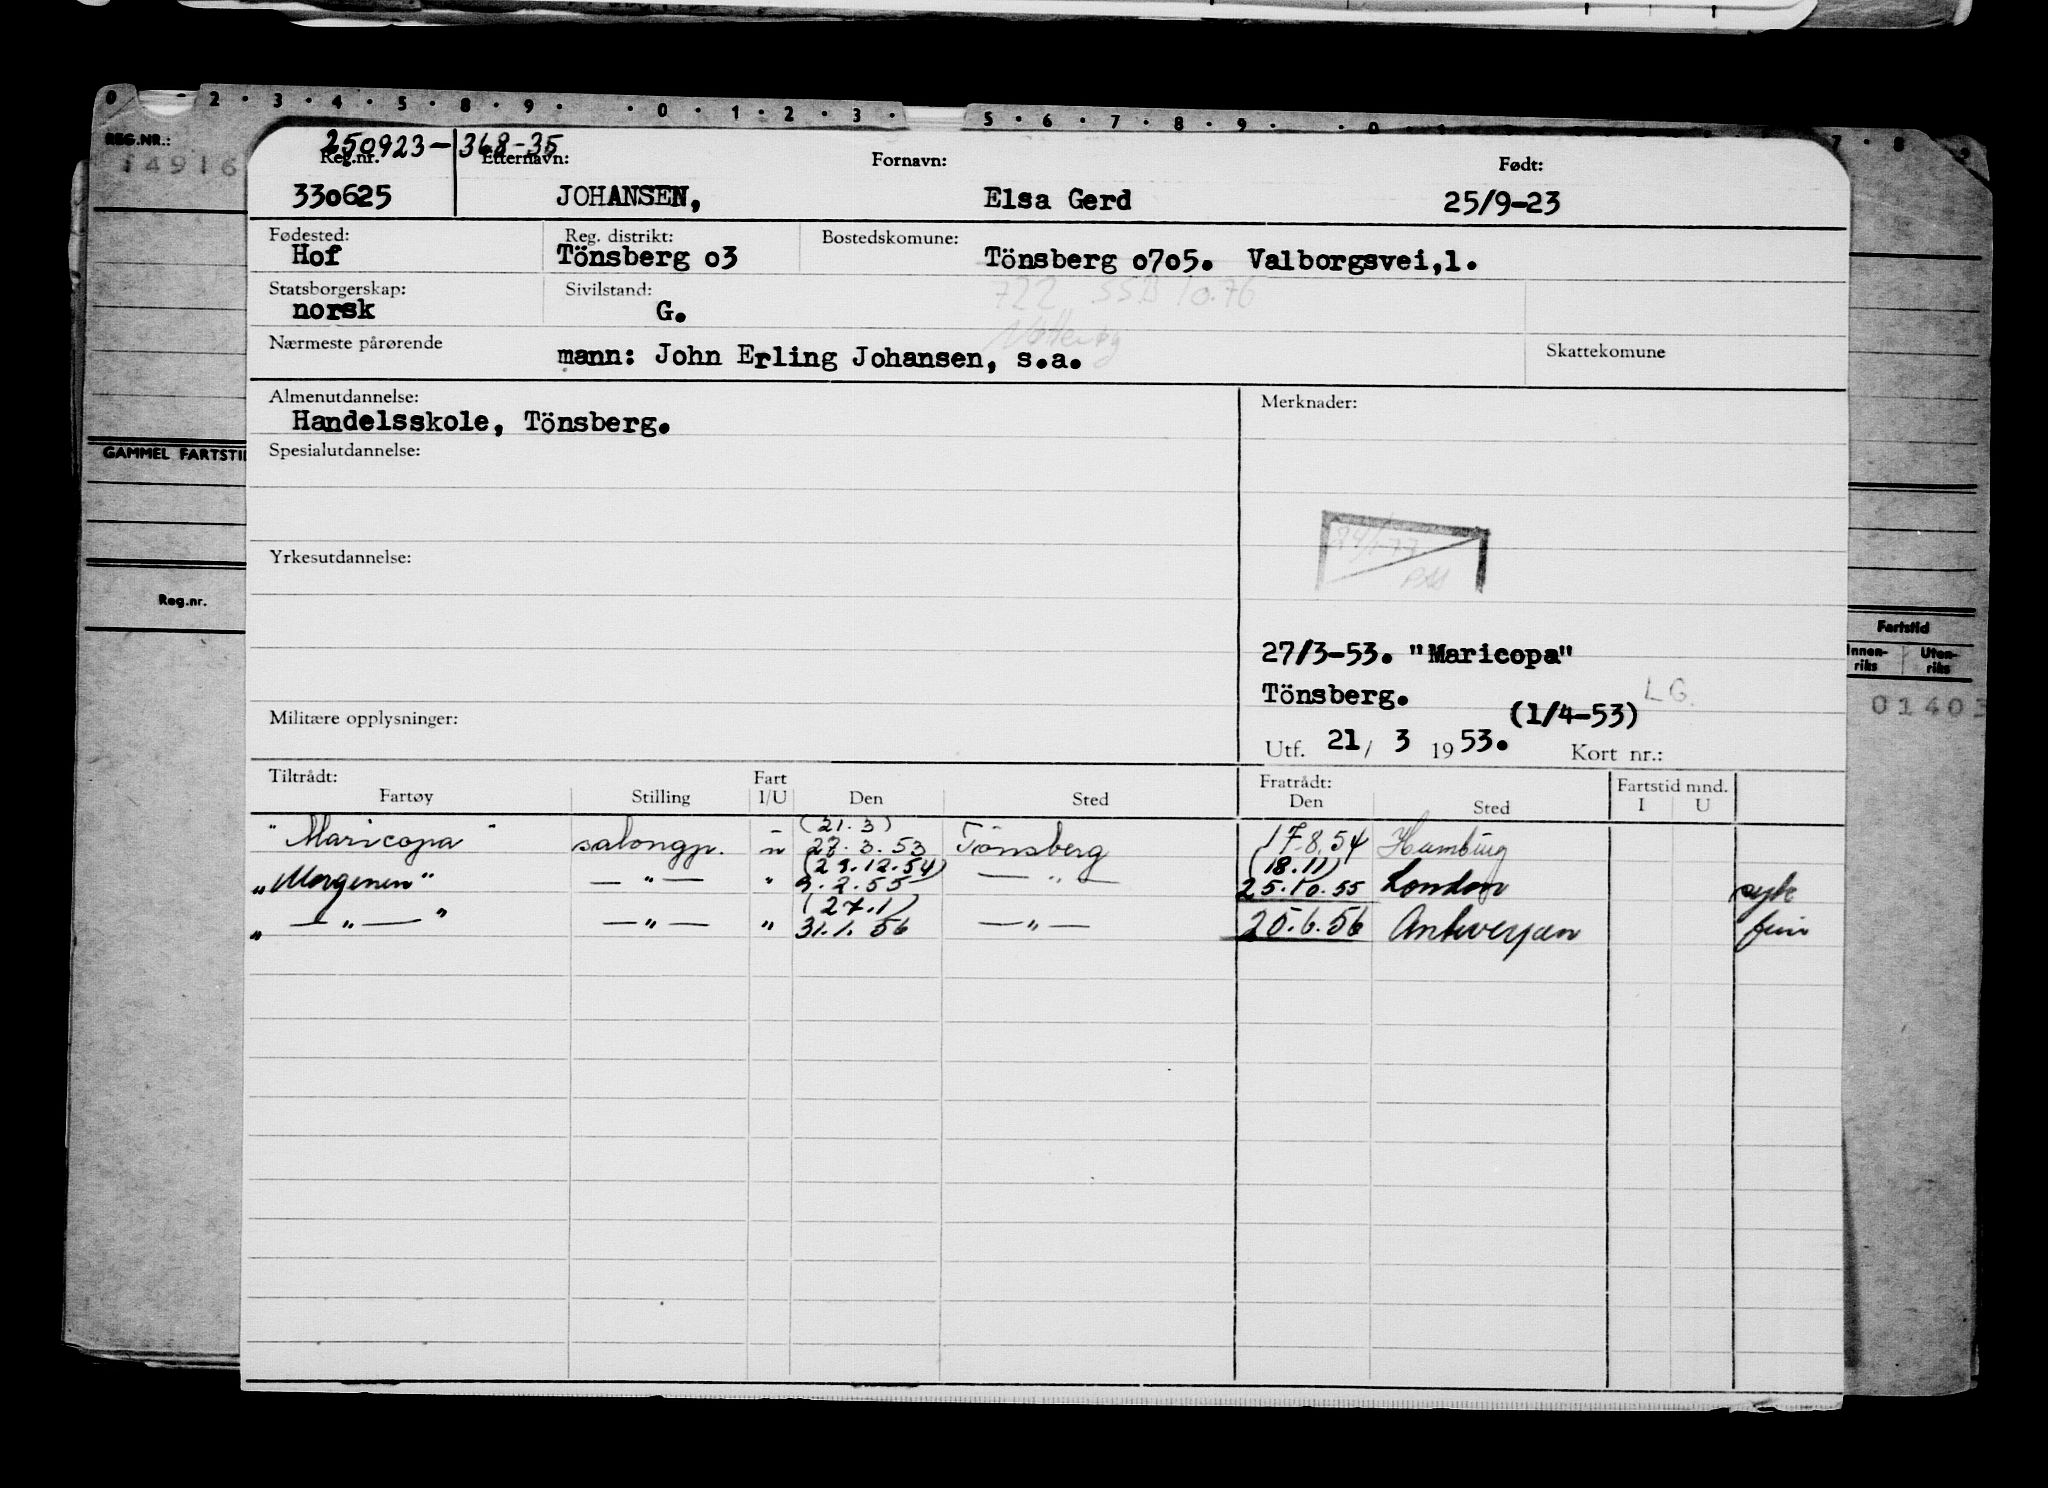 0 2 · 3 · 4 · 5 · 8 · 9 · · 0 · 1 · 2 · 3 · 5 · 6 · 7 · 8 · 9 · · 0 7 · 8 9
REG.NR.:
14916
250923-368-35
Reg.nr. Etternavn: Fornavn: Født:
330625 JOHANSEN, Elsa Gerd 25/9-23
Fødested: Reg. distrikt: Bostedskomune:
Hof Tönsberg o3 Tönsberg o7o5. Valborgsvei,1.
722 SSB 10.76
Statsborgerskap: Sivilstand:
norsk G.
Nærmeste pårørende Skattekomune
mann: John Erling Johansen, s.a.
Almenutdannelse: Merknader:
Handelsskole, Tönsberg.
GAMMEL FARTSTI
Spesialutdannelse:
Yrkesutdannelse:
Reg.nr.
Fartstid
Innen-riks Uten-riks
27/3-53. "Maricopa"
Tönsberg. LG.
(1/4-53)
01403
Militære opplysninger:
Utf. 21/ 3 1953. Kort nr.:
Tiltrådt: Fart Fratrådt: Fartstid mnd.
Fartøy Stilling I/U Den Sted Den Sted I U
(21.3)
"Maricopa" salongp. u 27.3.53 Tönsberg 17.8.54 Hamburg
(29.12.54) (18.11)
"Morgenen" — " — " 9.2.55 — " — 25.10.55 London syk
(27.1)
" — " — " — " — " 31.1. 56 — " — 25.6.56 Antwerpen